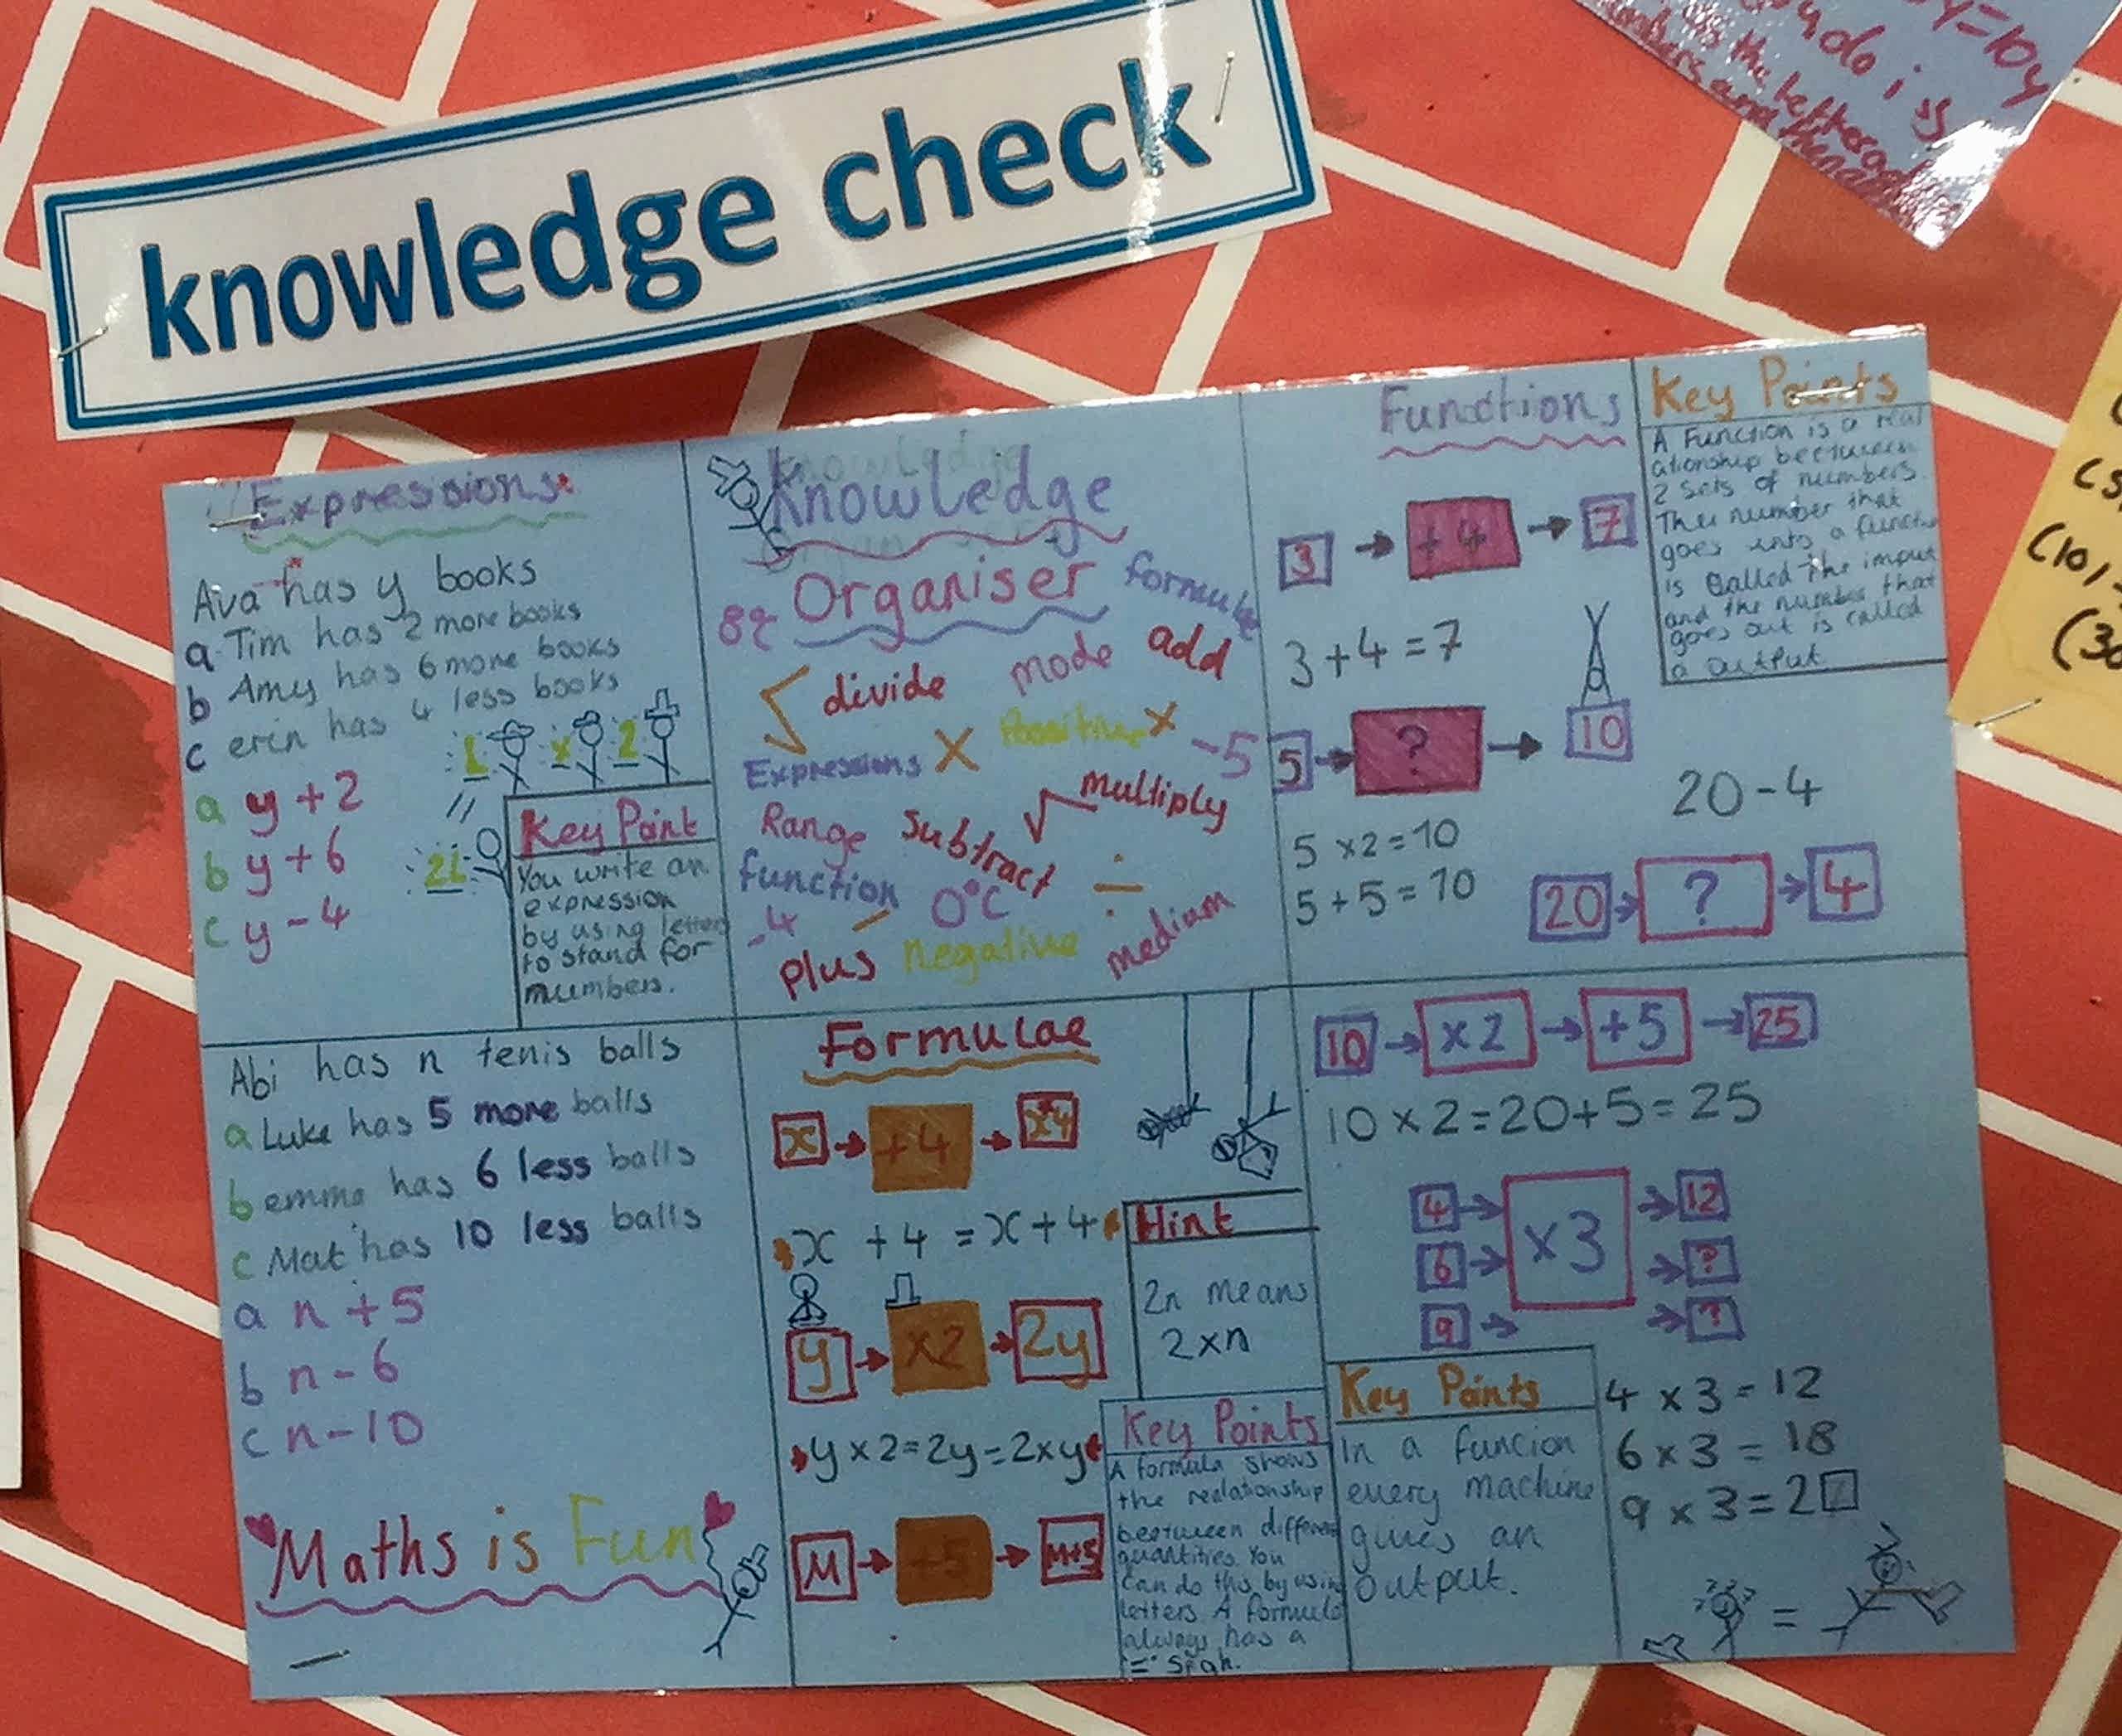 knowledge check
Expressions
Ava has y books
a Tim has 2 more books
b Amy has 6 more books
c erin has 4 less books
a y + 2
b y + 6
c y - 4
Key Point
You write an
expression
by using letters
to stand for
numbers.
Knowledge
Organiser
formula
divide
mode
add
Expressions
×
Positive
×
-5
Range
Subtract
√
multiply
function
0°C
÷
-4
plus
negative
medium
Functions
3 → +4 → 7
3 + 4 = 7
5 → ? → 10
5 × 2 = 10
5 + 5 = 10
20 - 4
20 → ? → 4
Key Points
A Function is a real
ationship beetween
2 sets of numbers.
The number that
goes into a
is called the input
and the number that
goes out is called
a output.
Abi has n tenis balls
a Luke has 5 more balls
b emma has 6 less balls
c Mat has 10 less balls
a n + 5
b n - 6
c n - 10
Maths is Fun
Formulae
x → +4 → x+4
x + 4 = x + 4
y → ×2 → 2y
y × 2 = 2y = 2 × y
M → +5 → M+5
Hint
2n means
2 × n
Key Points
A formula shows
the realationship
beetween different
quantities. You
can do this by using
letters. A formula
always has a
"="
10 → ×2 → +5 → 25
10 × 2 = 20 + 5 = 25
4 → ×3 → 12
6 → ?
9 → ?
Key Points
In a funcion
every machine
gives an
output.
4 × 3 = 12
6 × 3 = 18
9 × 3 = 2□
=
y=10y
do is
the letters
and then
(10,
(30